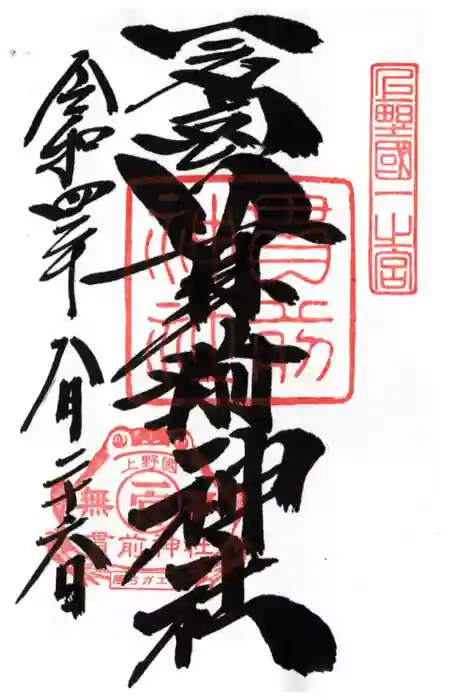 上野國一之宮
一之宮貫前神社
貫前
神社
令和四年 八月二十六日
上野國
無
貫前神社